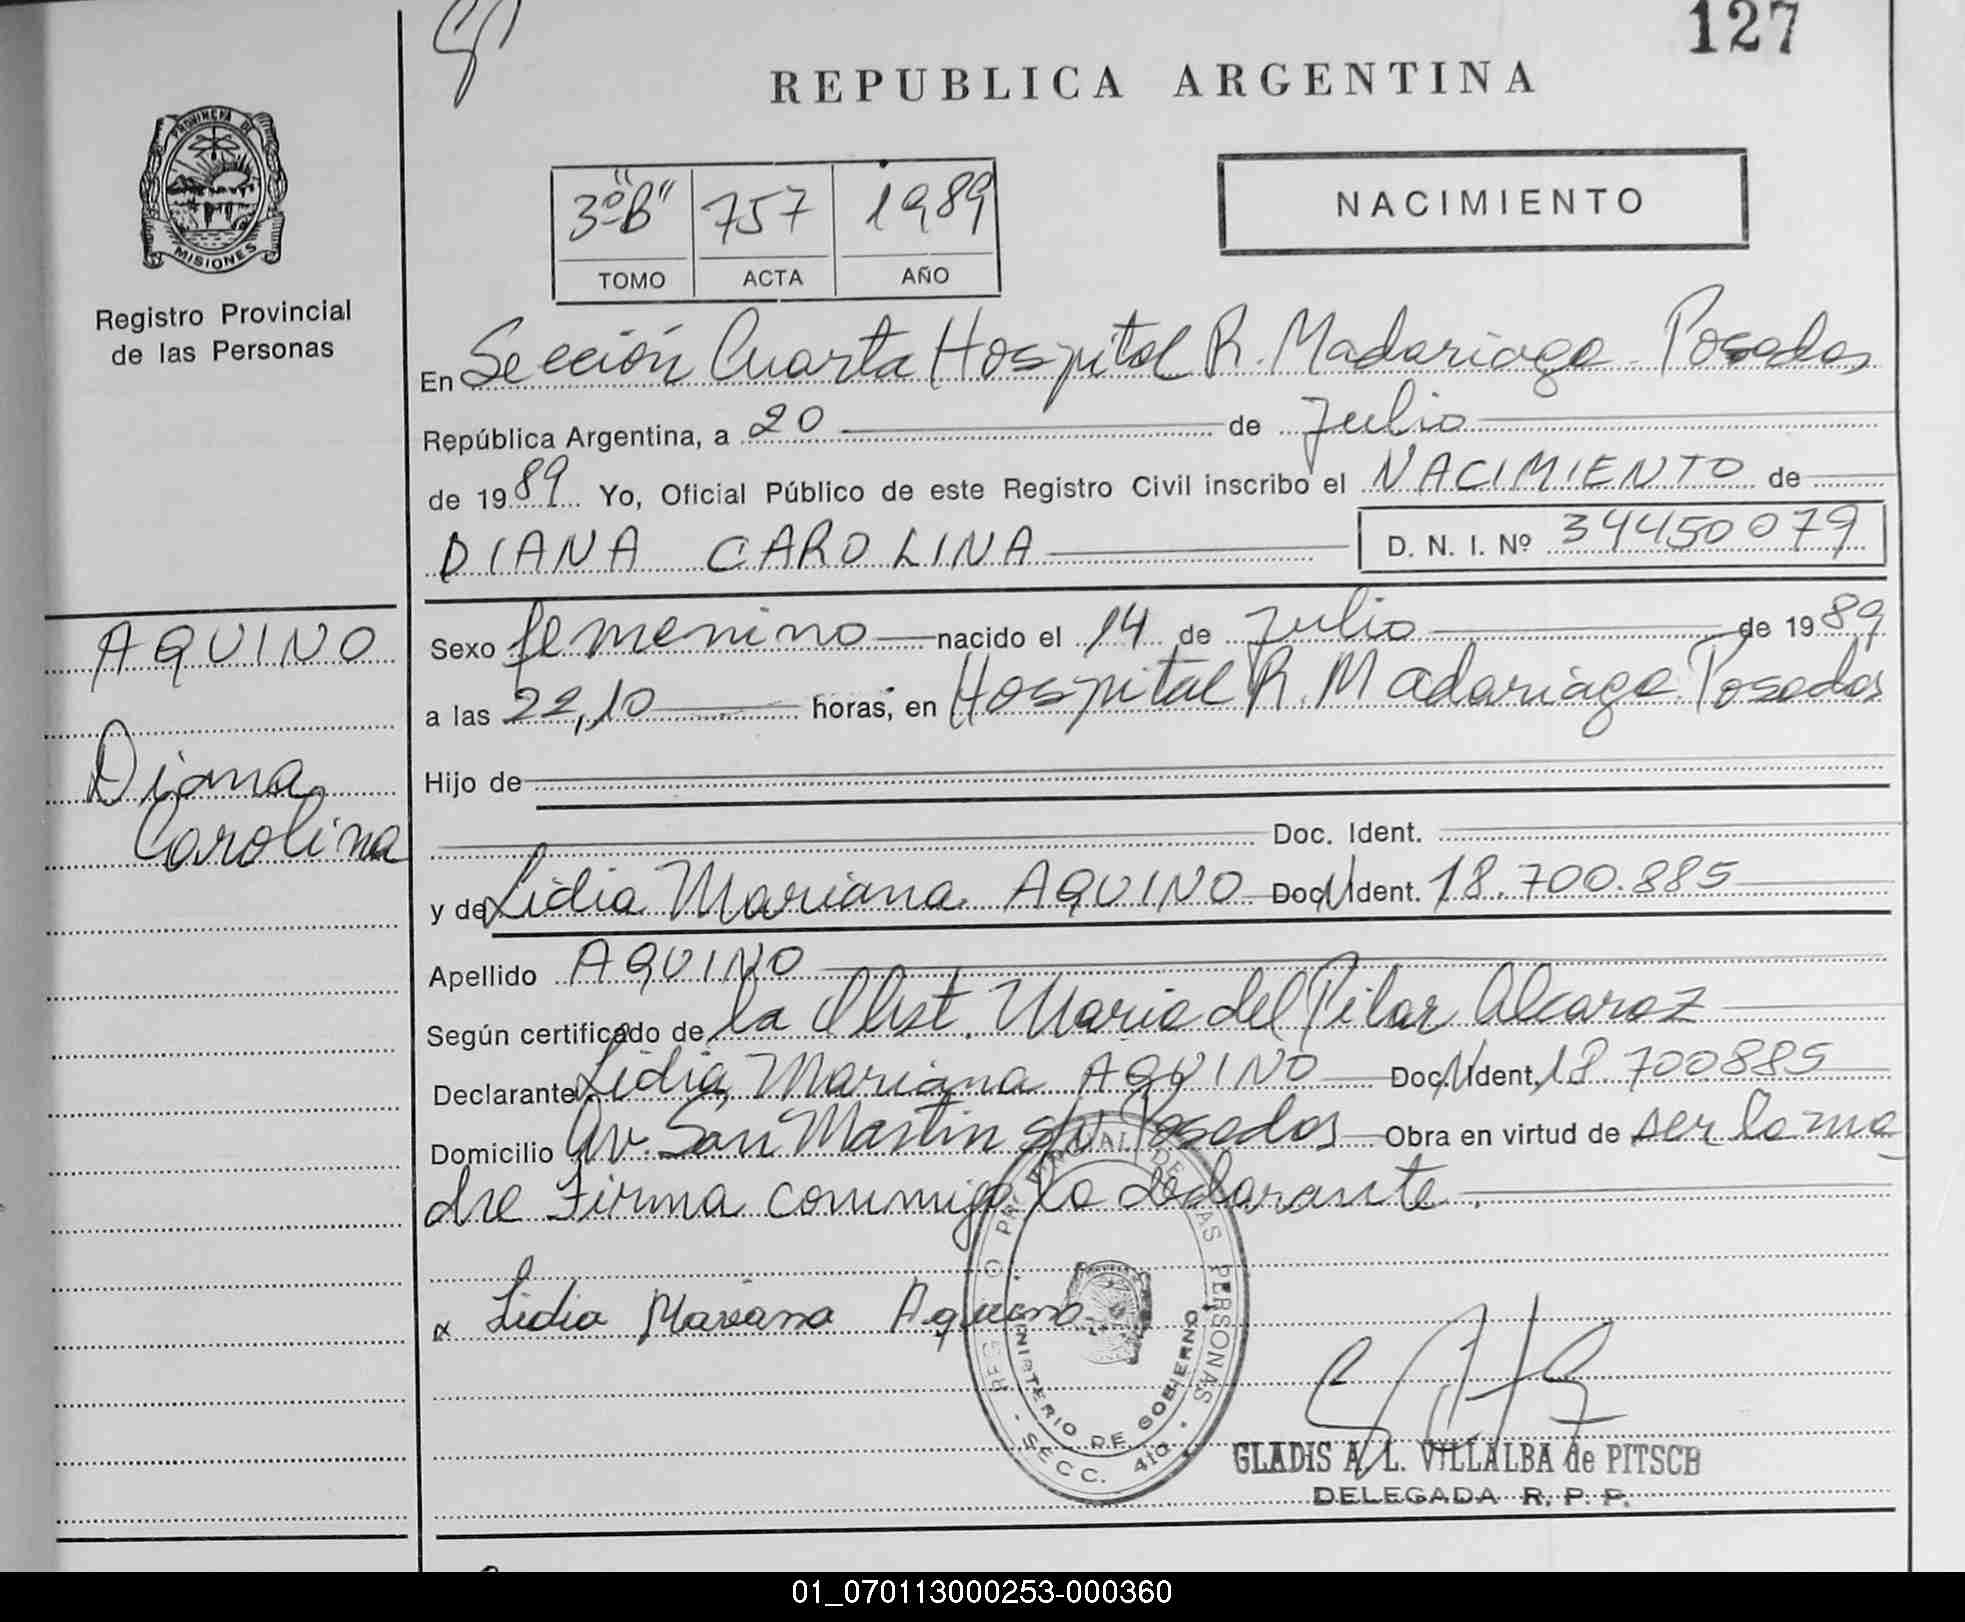 127
REPUBLICA ARGENTINA
PROVINCIA DE
MISIONES
Registro Provincial
de las Personas
3º "B" 757 1989
TOMO ACTA AÑO
NACIMIENTO
En Sección Cuarta Hospital R. Madariaga Posadas
República Argentina, a 20 de Julio
de 1989 Yo, Oficial Público de este Registro Civil inscribo el NACIMIENTO de
DIANA CAROLINA D. N. I. Nº 34450079
AQUINO
Diana
Carolina
Sexo femenino nacido el 14 de Julio de 1989
a las 22,10 horas, en Hospital R. Madariaga Posadas
Hijo de
Doc. Ident.
y de Lidia Mariana AQUINO Doc. Ident. 18.700.885
Apellido AQUINO
Según certificado de la Obst. Maria del Pilar Alcaraz
Declarante Lidia Mariana AQUINO Doc. Ident. 18.700885
Domicilio Av. San Martin s/n Posadas Obra en virtud de ser la ma
dre Firma conmigo la declarante.
x Lidia Mariana Aquino
PROVINCIAL DE LAS PERSONAS
MINISTERIO DE GOBIERNO
SECC. 4ta
GLADIS A. L. VILLALBA de PITSCH
DELEGADA R. P. P.
01_070113000253-000360